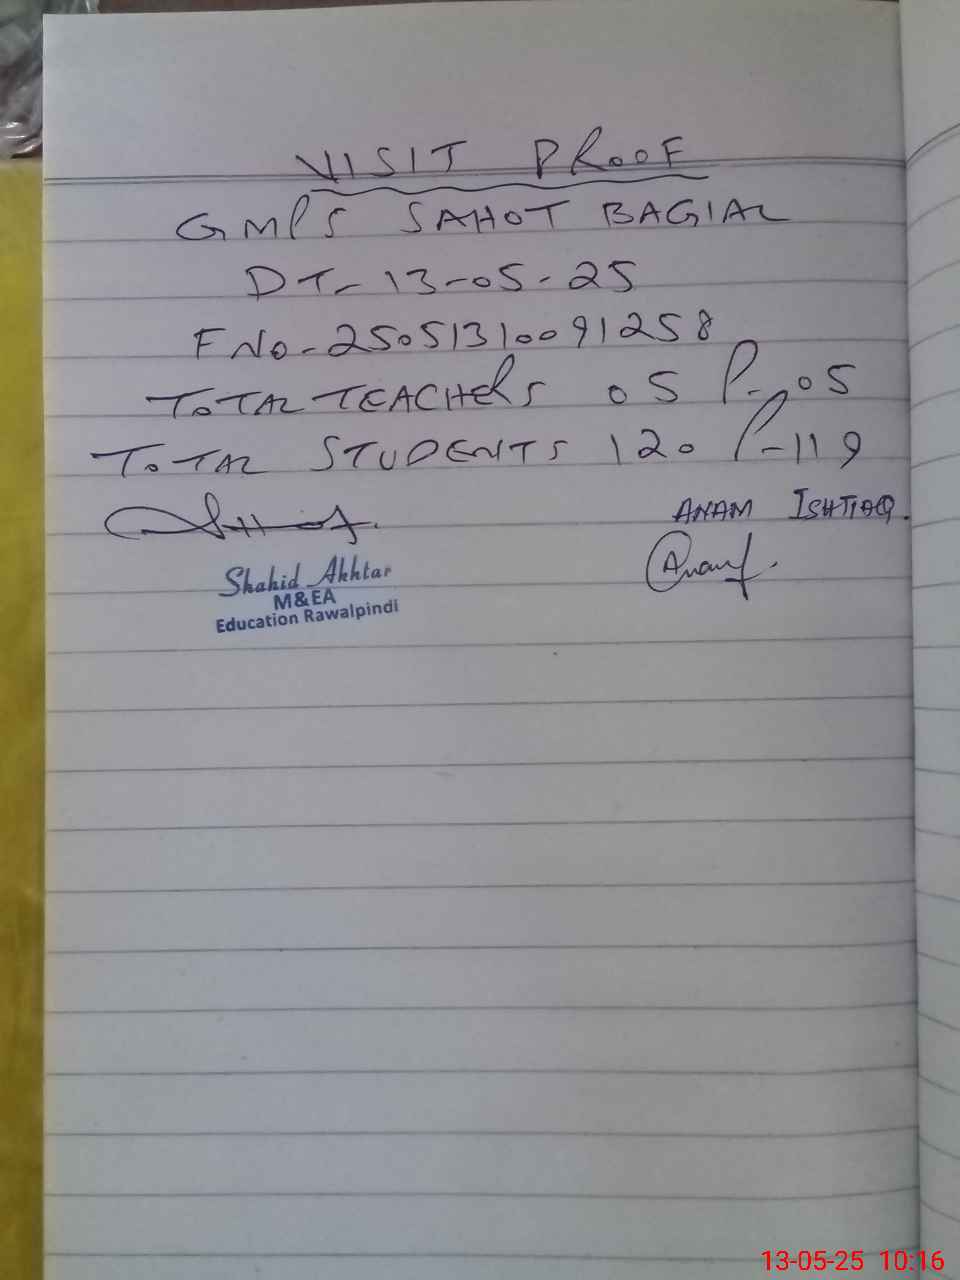 VISIT PROOF
GMPS SAHOT BAGIAL
DT- 13-05-25
F No- 25051310091258
TOTAL TEACHERS 05 P-05
TOTAL STUDENTS 120 P-119
ANAM ISHTIAQ.
Anam
Shahid Akhtar
M&EA
Education Rawalpindi
13-05-25 10:16